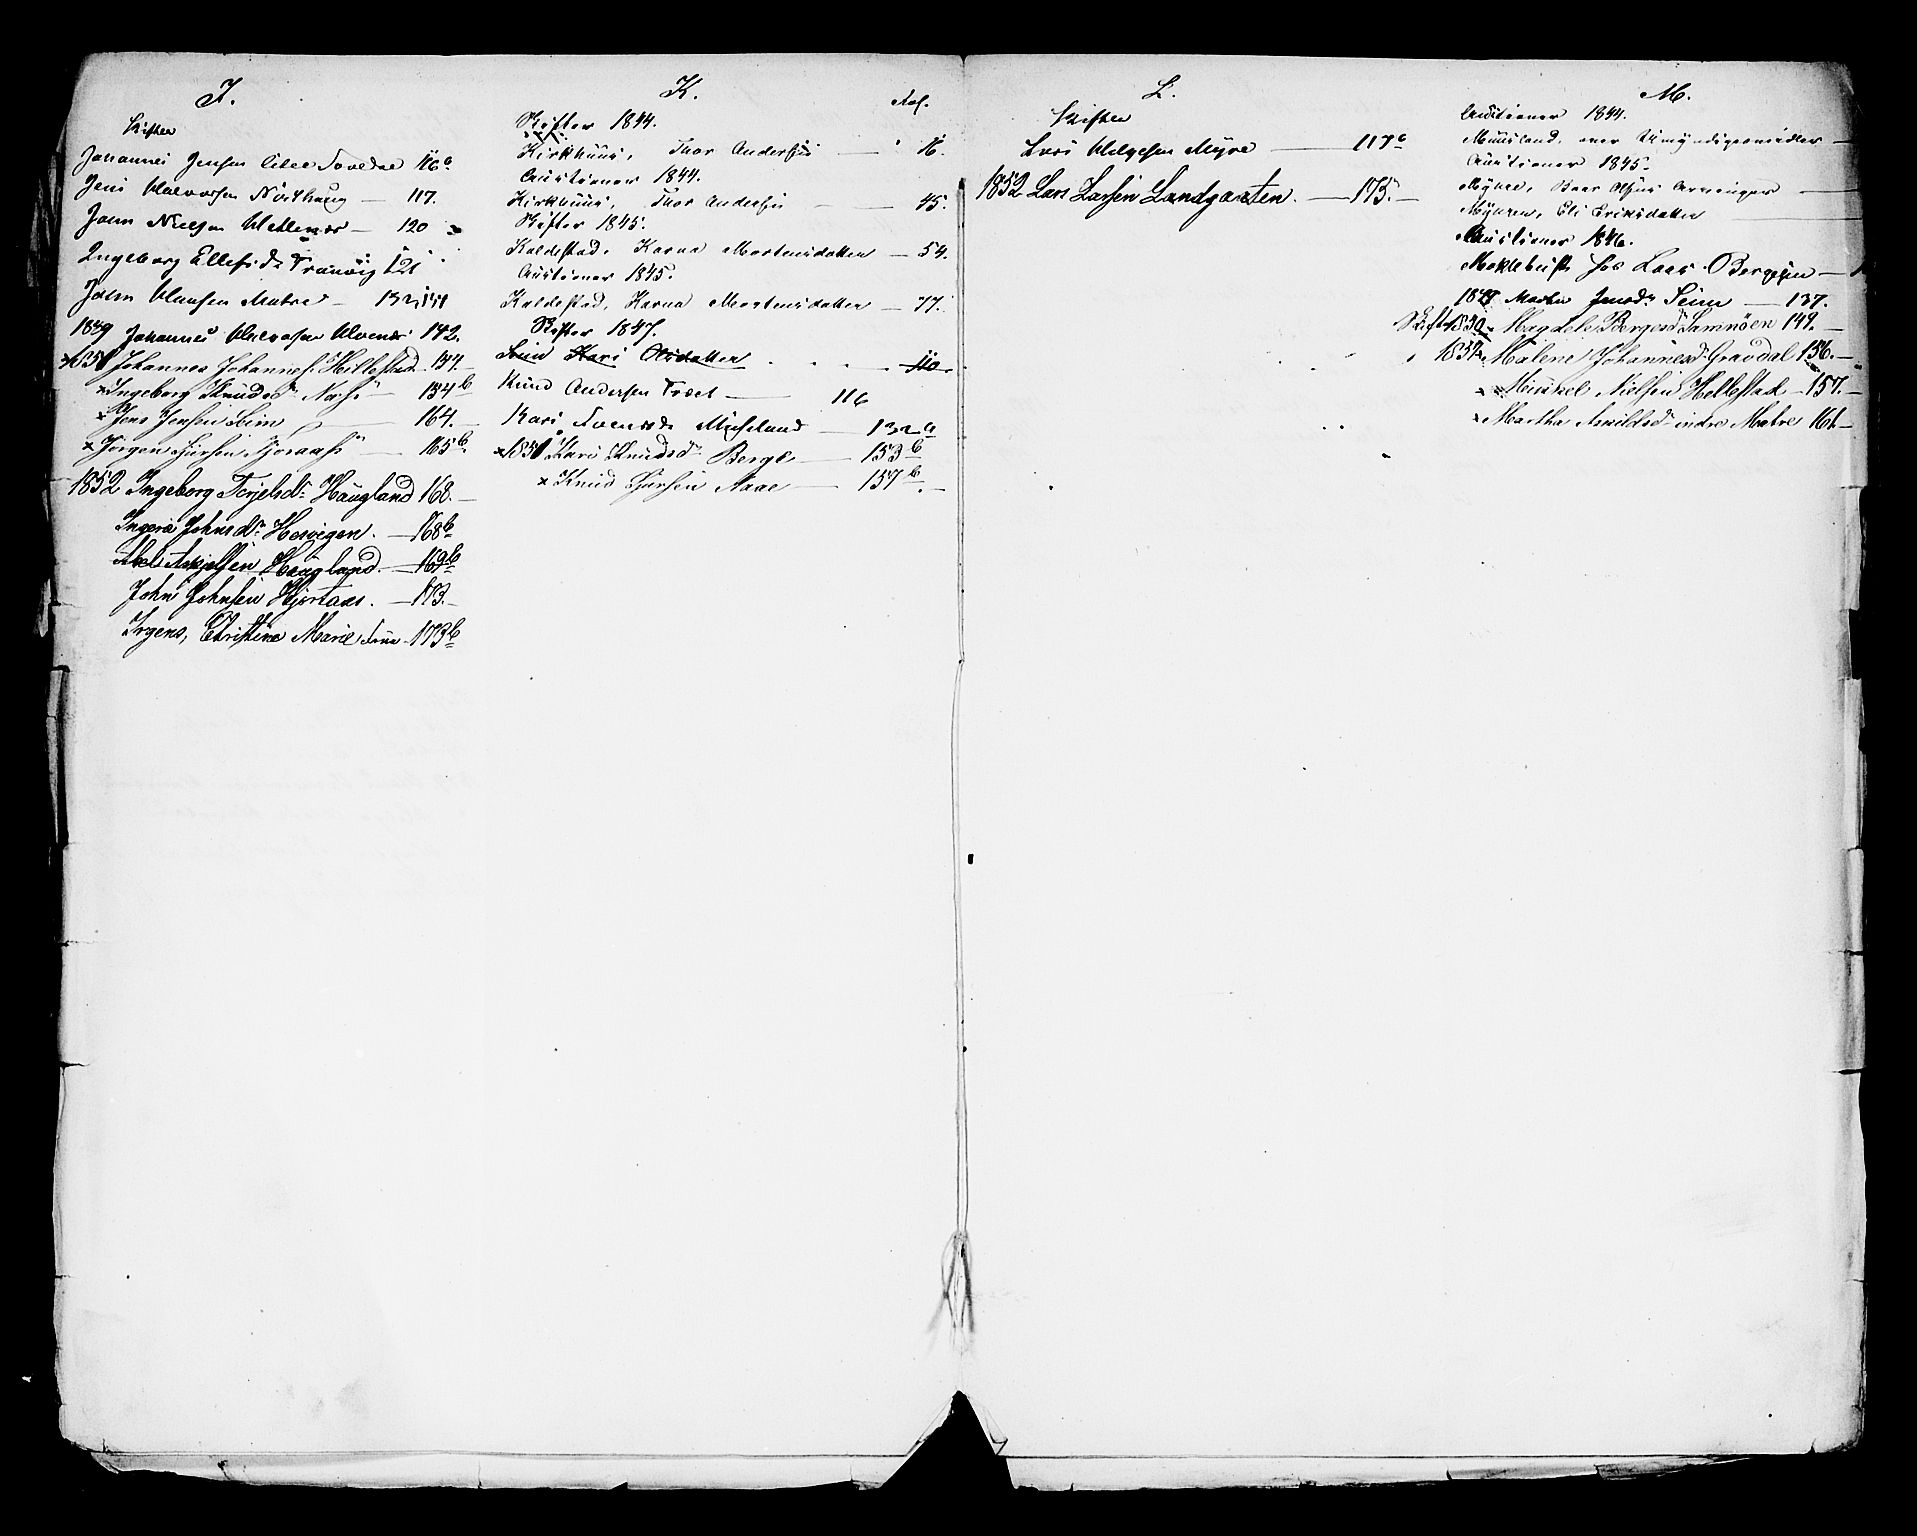 J.
Skifter
Johannes Jensen Litle Tovedae 116b
Jens Halvorsen Northaug — 117.
John Nielsen Vetlenes — 120
Ingeborg Ellefsd. Tranvig 121
John Hansen Matre — 132, 141
1849 Johannes Halvorsen Alvenes 142.
x 1851 Johannes Johannes. Hillestad 154.
x Ingeborg Knudsd. Naese — 154b
x Jens Jensen Seim — 164.
x Jørgen Sjursen Sjoraas — 165b.
1852 Ingeborg Terjelsdr. Haugland 168.
Johnsdr. Hesvigen. — 168b
Abel Askjelsen Haugland. — 169b
John Johnsen Hjortaas. — 173.
Irgens, Christine Marie Frue 173b
K.
Fol.
Skifter 1844.
Kirkhuus, Thor Andersen — 16.
Auctioner 1844.
Kirkhuus, Thor Andersen — 45.
Skifter 1845.
Kaldestad, Karna Mortensdatter — 54.
Auctioner 1845.
Kaldestad, Karna Mortensdatter — 77.
Skifter 1847.
Seim Kari Olsdatter 110
Knud Andersen Træet — 116
Kari Svensd. — 132b
x 1851 Kari Knudsdr. Berge — 153b
x Knud Sjursen Aaae — 157b.
L.
Skifter
Lars Helgesen Myre — 117b
1852 Lars Larsen Landgarten. — 175.
M.
Auctioner 1844.
Muusland, over Umyndigesmidler —
Auctioner 1845.
Mynre, Baar Olsens Arvinger —
Myhren, Eli Eriksdatter —
Auctioner 1846.
Moklebust hos Lars Børgesen —
1848 Marta Jensdr. Seim — 137.
Skift. 1850 Magdele Børgesdr. Samnøen 149. —
1851 x Malene Johannesdr. Gravdal 156. —
x Mikkel Nielsen Hellestad — 157. —
x Martha Arnildsdr. indre Matre 161 —